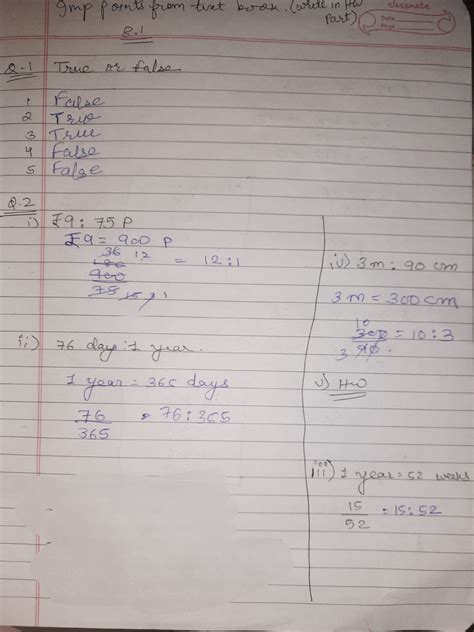 Imp points from text book. (write in HW Part)
classmate
Date
Page
8.1
Q-1 True or False
1 False
2 True
3 True
4 False
5 False
Q.2
i) ₹9 : 75 P
₹9 = 900 P
36 12
180
900 = 12:1
75 15 3 1
ii) 76 day : 1 year.
1 year = 365 days
76/365 = 76:365
iv) 3m : 90 cm
3m = 300 cm
10
300 = 10:3
3 90
v) HW
iii) 1 year = 52 weeks
15/52 = 15:52